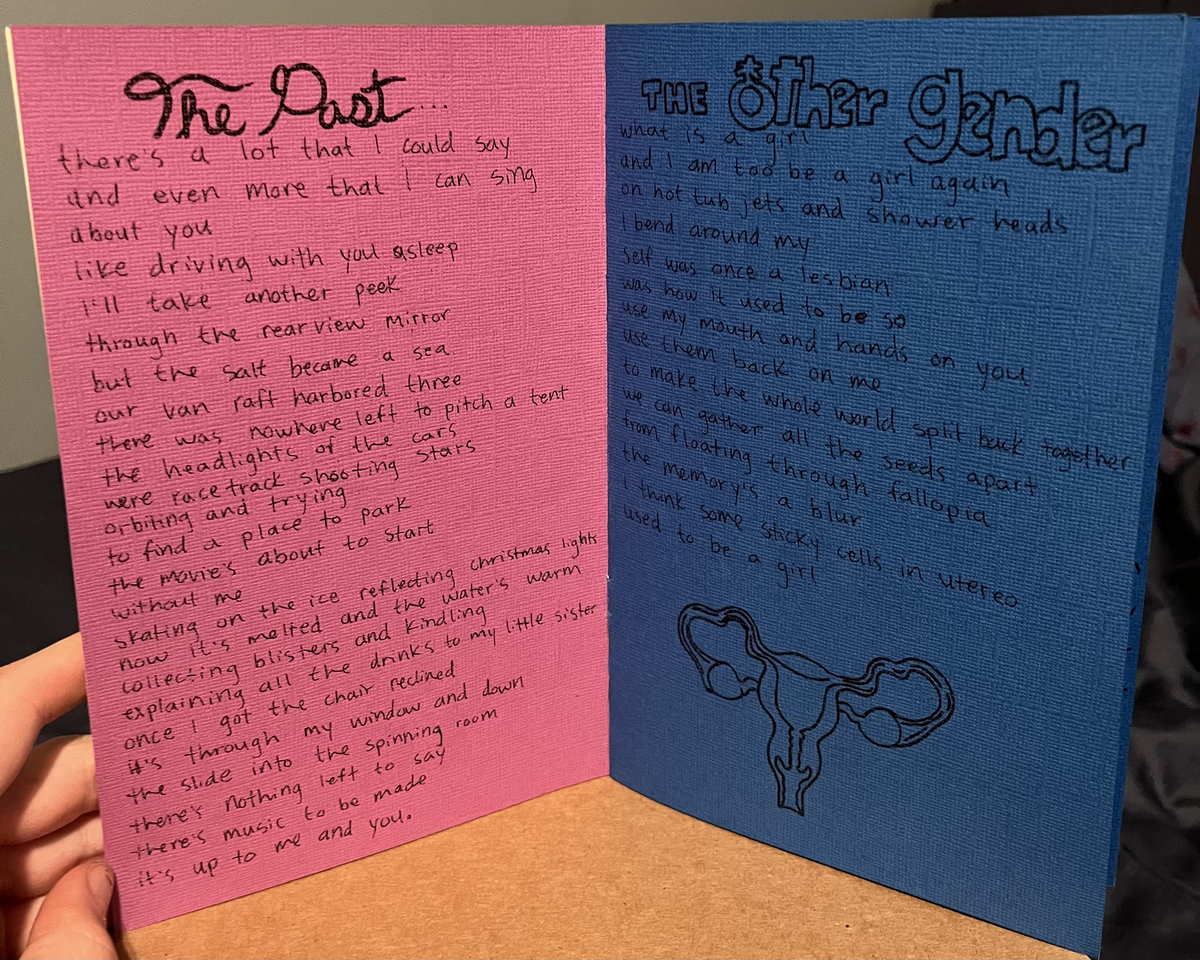 The Past...
there's a lot that I could say
and even more that I can sing
about you
like driving with you asleep
i'll take another peek
through the rearview mirror
but the salt became a sea
our van raft harbored three
there was nowhere left to pitch a tent
the headlights of the cars
were racetrack shooting stars
orbiting and trying
to find a place to park
the movie's about to start
without me
skating on the ice reflecting christmas lights
now it's melted and the water's warm
collecting blisters and kindling
explaining all the drinks to my little sister
once I got the chair reclined
it's through my window and down
the slide into the spinning room
there's nothing left to say
there's music to be made
it's up to me and you.
THE other gender
what is a girl
and I am too be a girl again
on hot tub jets and shower heads
I bend around my
self was once a lesbian
was how it used to be so
use my mouth and hands on you
use them back on me
to make the whole world split back together
we can gather all the seeds apart
from floating through fallopia
the memory's a blur
I think some sticky cells in utereo
used to be a girl